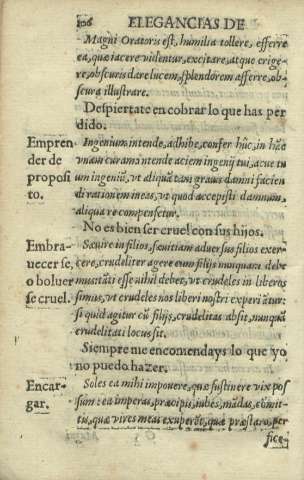 106 ELEGANCIAS DE
Magni Oratoris est, humilia tollere, efferre
ea, quæ iacere videntur, excitare, atque erige-
re, obscuris dare lucem, splendorem afferre, ob-
scura illustrare.
Despiertate en cobrar lo que has per
dido.
Empren
der de
proposi
to.
Ingenium intende, adhibe, confer hûc, in hâc
vnam curam intende aciem ingenij tui, acue tu
um ingeniũ, vt aliquã tam grauis damni facien
di rationem ineas, vt quod accepisti damnum,
aliqua re compensetur.
No es bien ser cruel con sus hijos.
Embra-
uecer se,
o boluer
se cruel.
Sæuire in filios, sæuitiam aduersus filios exer-
cere, crudeliter agere cum filijs nunquam debe
mus: tãti esse nihil debet, vt crudeles in liberos
simus, vt crudeles nos liberi nostri experiãtur:
si quid agitur cũ filijs, crudelitas absit, nunquã
crudelitati locus sit.
Siempre me encomendays lo que yo
no puedo hazer.
Encar-
gar.
Soles ea mihi imponere, quæ sustinere vix pos
sum: ea imperas, præcipis, iubes, mãdas, cõmit-
tis, quæ vires meas exuperẽt, quæ præstare, per
fice-